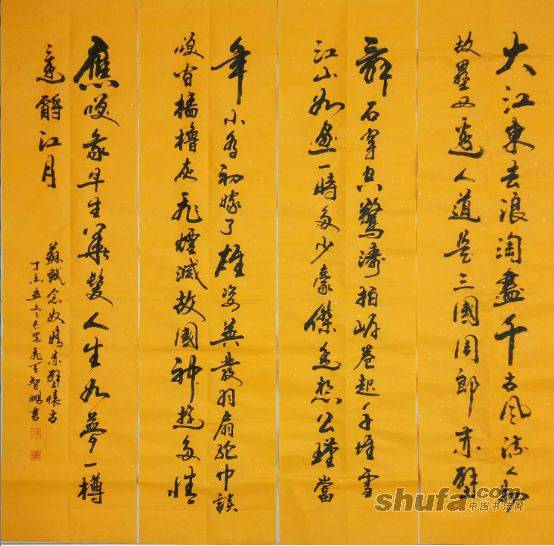 大江東去浪淘盡千古風流人物
故壘西邊人道是三國周郎赤壁
亂石穿空驚濤拍岸卷起千堆雪
江山如畫一時多少豪傑遙想公瑾當
年小喬初嫁了雄姿英發羽扇綸巾談
笑間檣櫓灰飛煙滅故國神遊多情
應笑我早生華髮人生如夢一樽
還酹江月
蘇軾念奴嬌赤壁懷古
丁亥智鵬書
shufa.com
中国书法网